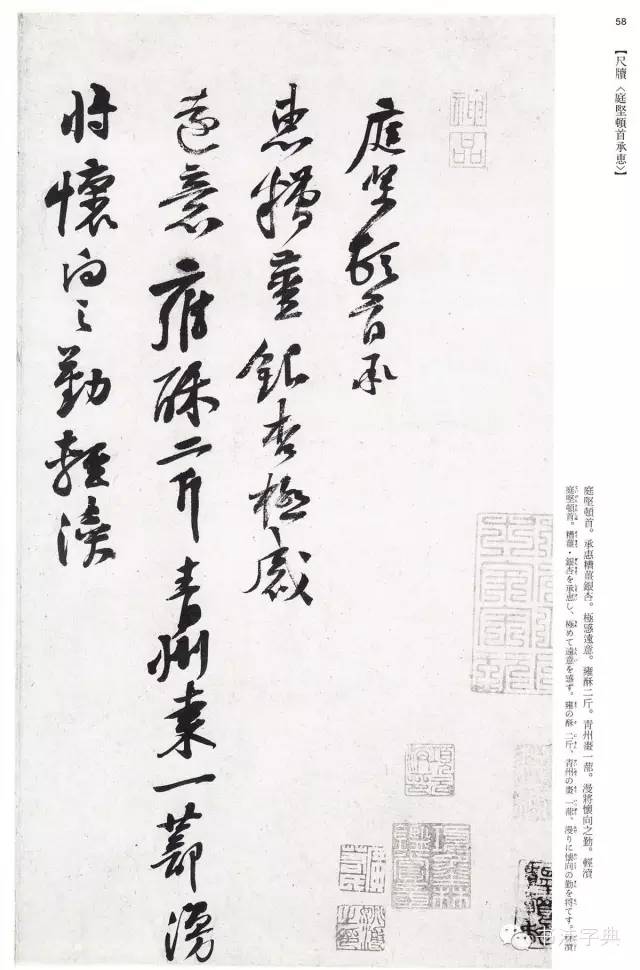 58
【尺牘〈庭堅頓首承恵〉】
庭堅頓首。承恵糟薑銀杏。極感遠意。雍酥二斤。青州棗一蔀。漫將懷向之勤。輕瀆
庭堅頓首。糟薑・銀杏を承恵し、極めて遠意を感ず。雍の酥 二斤、青州の棗 一蔀、漫りに懷向の勤を将てす。輕瀆
神品
庭堅頓首承
惠糟薑銀杏極感
遠意雍酥二斤青州棗一蔀漫
將懷向之勤輕瀆
书法字典